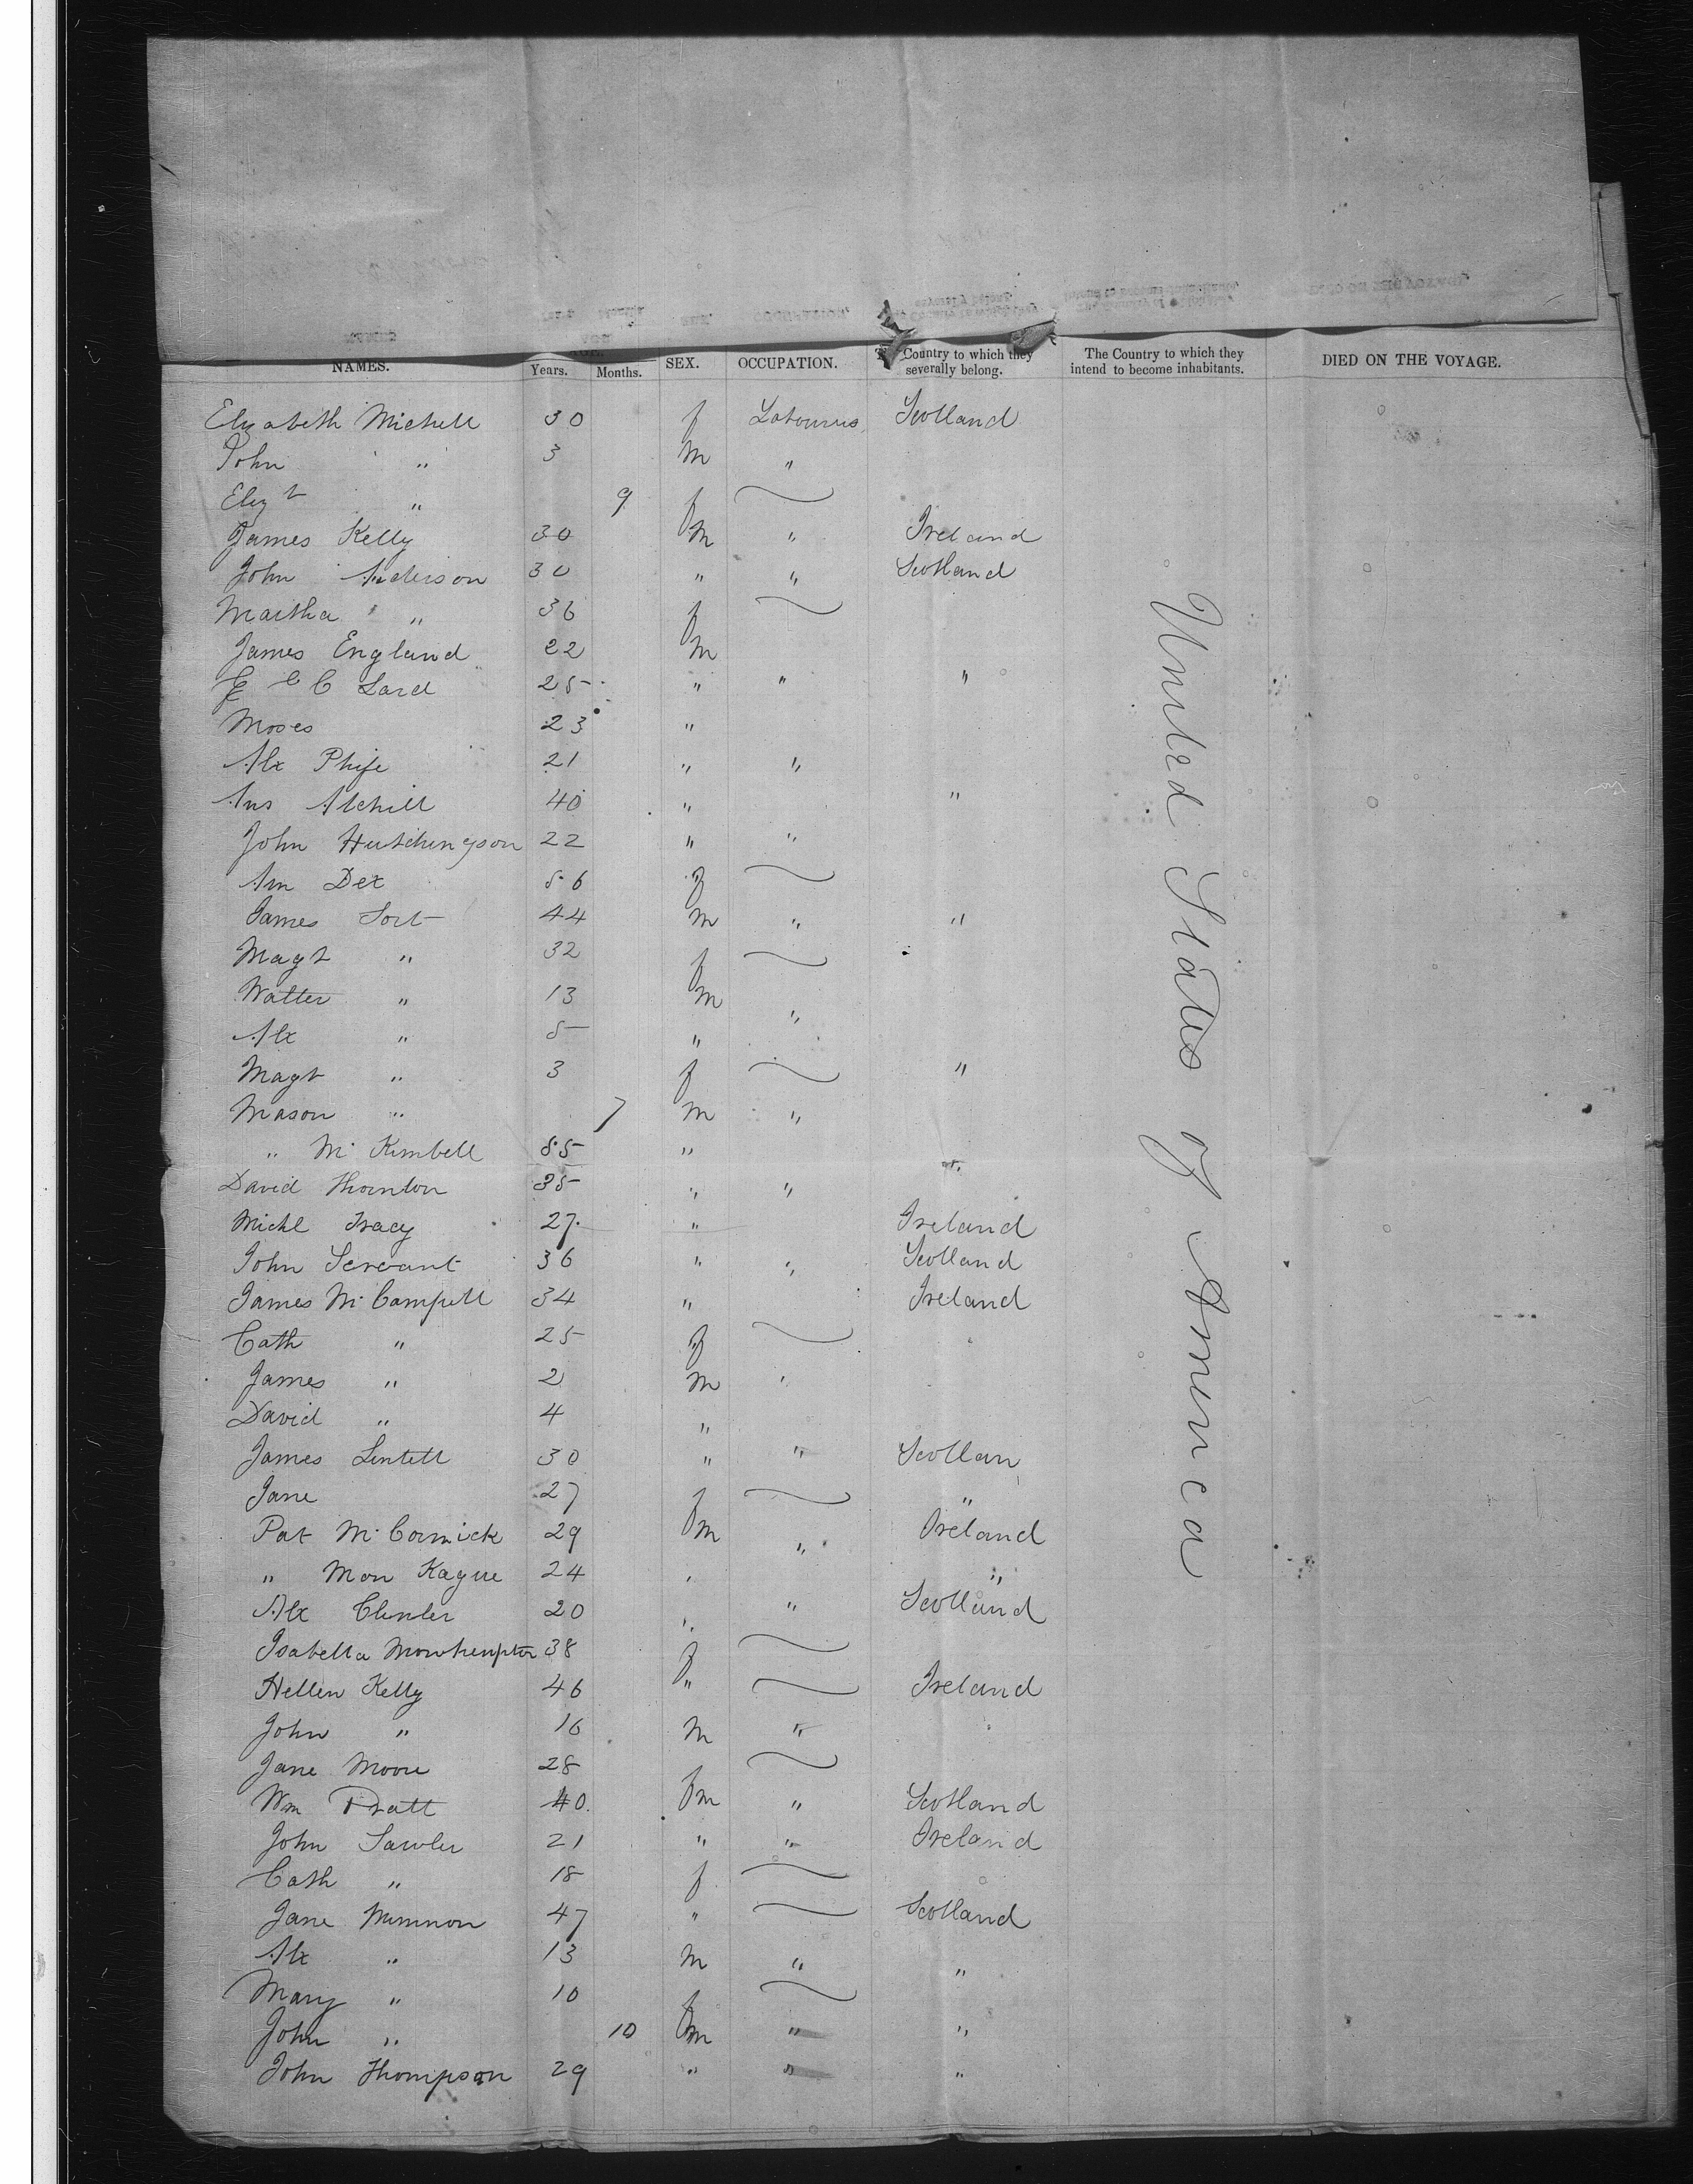 NAMES. Years. Months. SEX. OCCUPATION. Country to which they severally belong. The Country to which they intend to become inhabitants. DIED ON THE VOYAGE.
Elizabeth Michell 30 f Labourers Scotland
John " 3 m "
Elizt " 9 f
James Kelly 30 m " Ireland
John Anderson 30 " " Scotland
Martha " 36 f
James England 22 m
C Lard 25 " " "
Moses 23 "
Alx Phife 21 " "
Mitchell 40 " "
John Hutchingson 22 " "
Ann Dex 56 f
James Sort 44 m " "
Magt " 32 f
Walter " 13 m "
Alx " 5 "
Magt " 3 f "
Mason " 7 m "
" Mc Kimbell 55 " "
David Thornton 35 " "
Michl Tracy 27 " Ireland
John Servant 36 " " Scotland
James Mc Campell 34 " Ireland
Cath " 25 f
James " 2 m "
David " 4 "
James Lintell 30 " " Scotlan
Jane 27 f "
Pat Mc Cormick 29 m " Ireland
" Mon Kague 24 " "
Alx Clenler 20 " " Scotland
Isabella 38 f
Hellen Kelly 46 " Ireland
John " 16 m "
Jane Moore 28 f
Wm Pratt 40 m " Scotland
John Sawler 21 " " Ireland
Cath " 18 f
Jane Mimnon 47 " Scotland
Alx " 13 m " "
Mary " 10 f
John " 10 m " "
John Thompson 29 " " "
United States of America